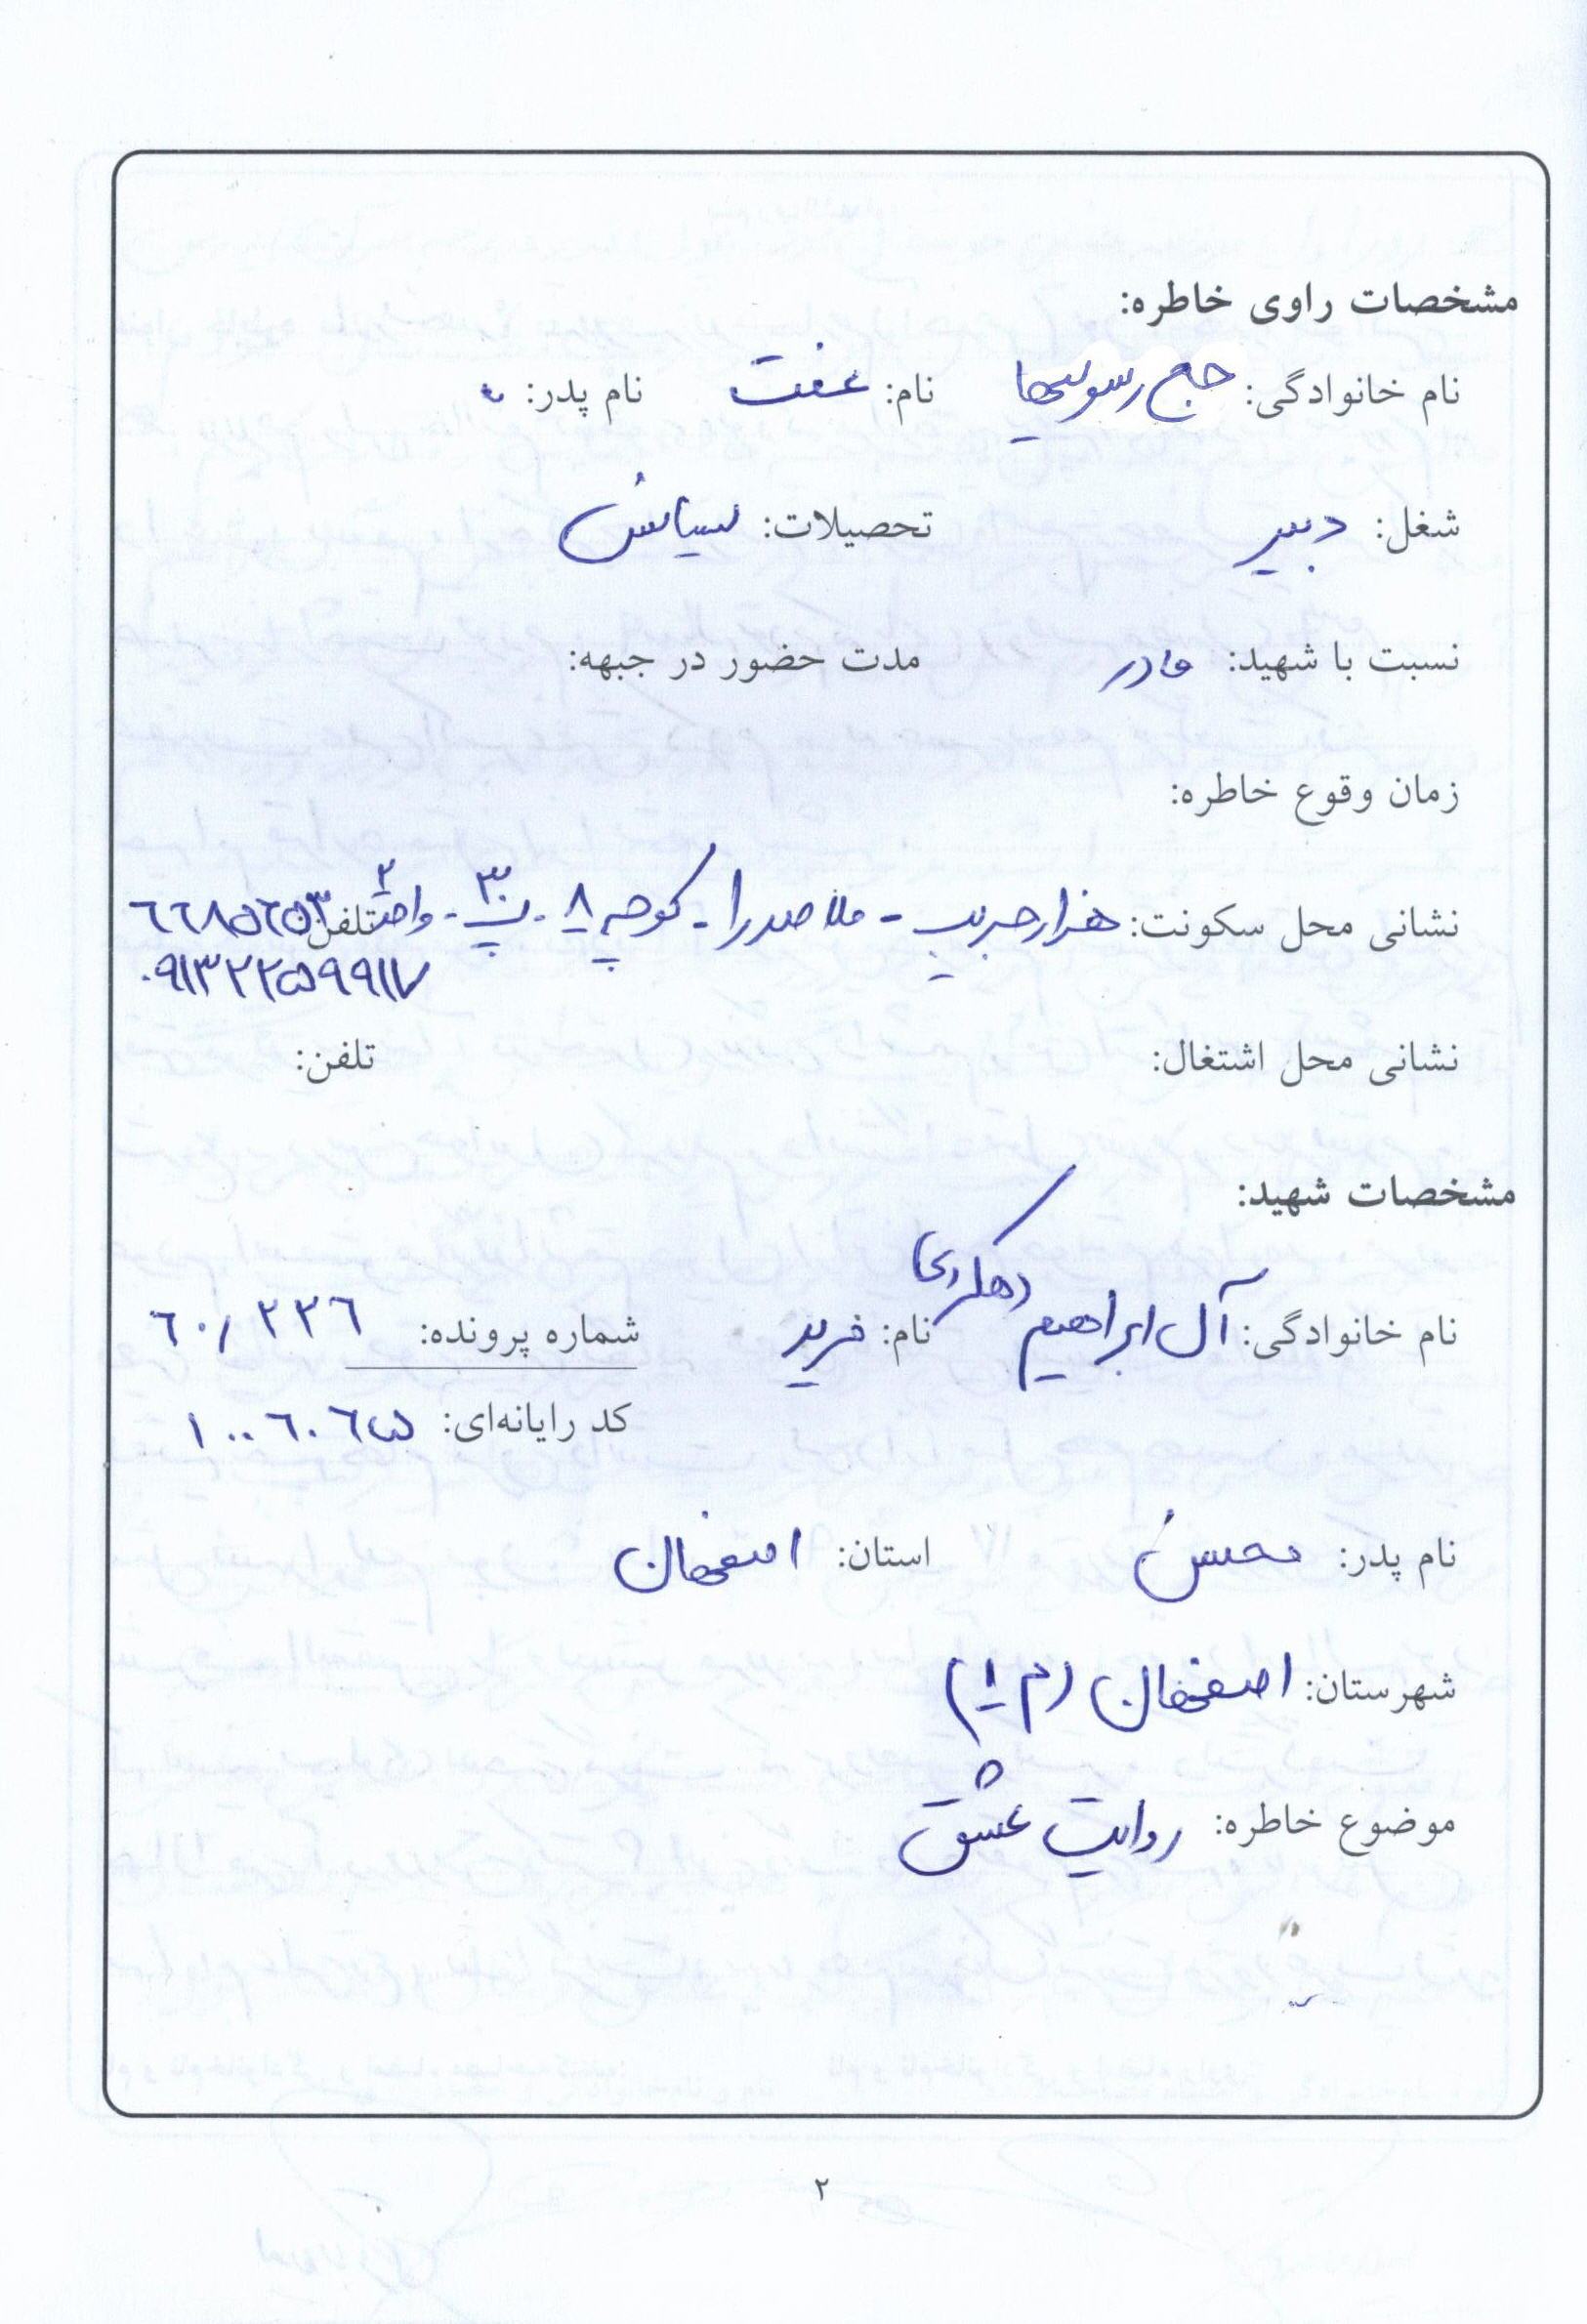 مشخصات راوی خاطره:
نام خانوادگی: حج رسولیها نام: عفت نام پدر:
شغل: دبیر تحصیلات: لیسانس
نسبت با شهید: مادر مدت حضور در جبهه:
زمان وقوع خاطره:
نشانی محل سکونت: هزار جریب - ملاصدرا - کوچه ۸ - پ ۳۰ - واحد ۲ تلفن: ۶۶۸۵۶۵۳
۰۹۱۳۲۲۵۹۹۱۷
نشانی محل اشتغال: تلفن:
مشخصات شهید:
نام خانوادگی: آل ابراهیم دهکردی نام: فرید شماره پرونده: ۶۰/۲۲۶
کد رایانه‌ای: ۱۰۰۶۰۶۵
نام پدر: محسن استان: اصفهان
شهرستان: اصفهان (م ۱)
موضوع خاطره: روایت عشق
۲